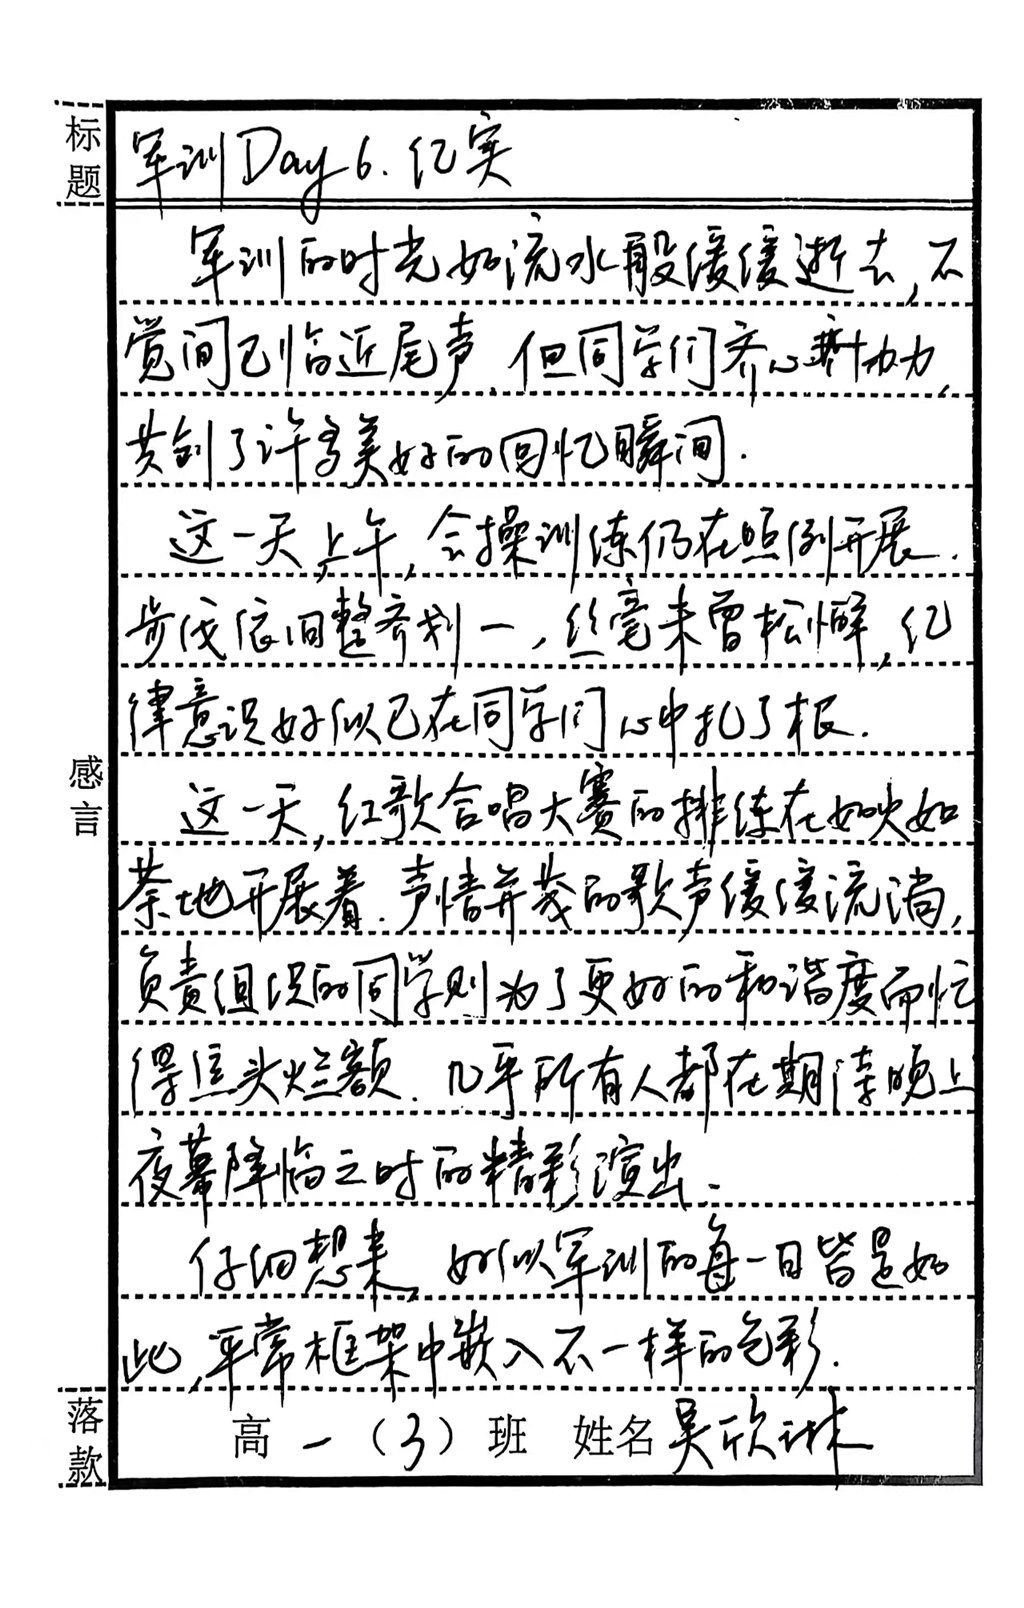 标题
军训Day 6. 纪实
军训的时光如流水般缓缓逝去,不
觉间已临近尾声.但同学们齐心协力,
共创了许多美好的回忆瞬间.
这一天上午,会操训练仍在照例开展.
步伐依旧整齐划一,丝毫未曾松懈,纪
律意识好似已在同学们心中扎了根.
感言
这一天,红歌合唱大赛的排练在如火如
荼地开展着.声情并茂的歌声缓缓流淌,
负责组织的同学则为了更好的和谐度而忙
得焦头烂额.几乎所有人都在期待晚上
夜幕降临之时的精彩演出.
仔细想来,好似军训的每一日皆是如
此,平常框架中嵌入不一样的色彩.
落款
高一(3)班 姓名 吴欣琳